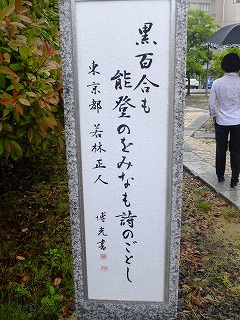 黒百合も
能登のをみなも詩のごとし
東京都 若林正人
博光書